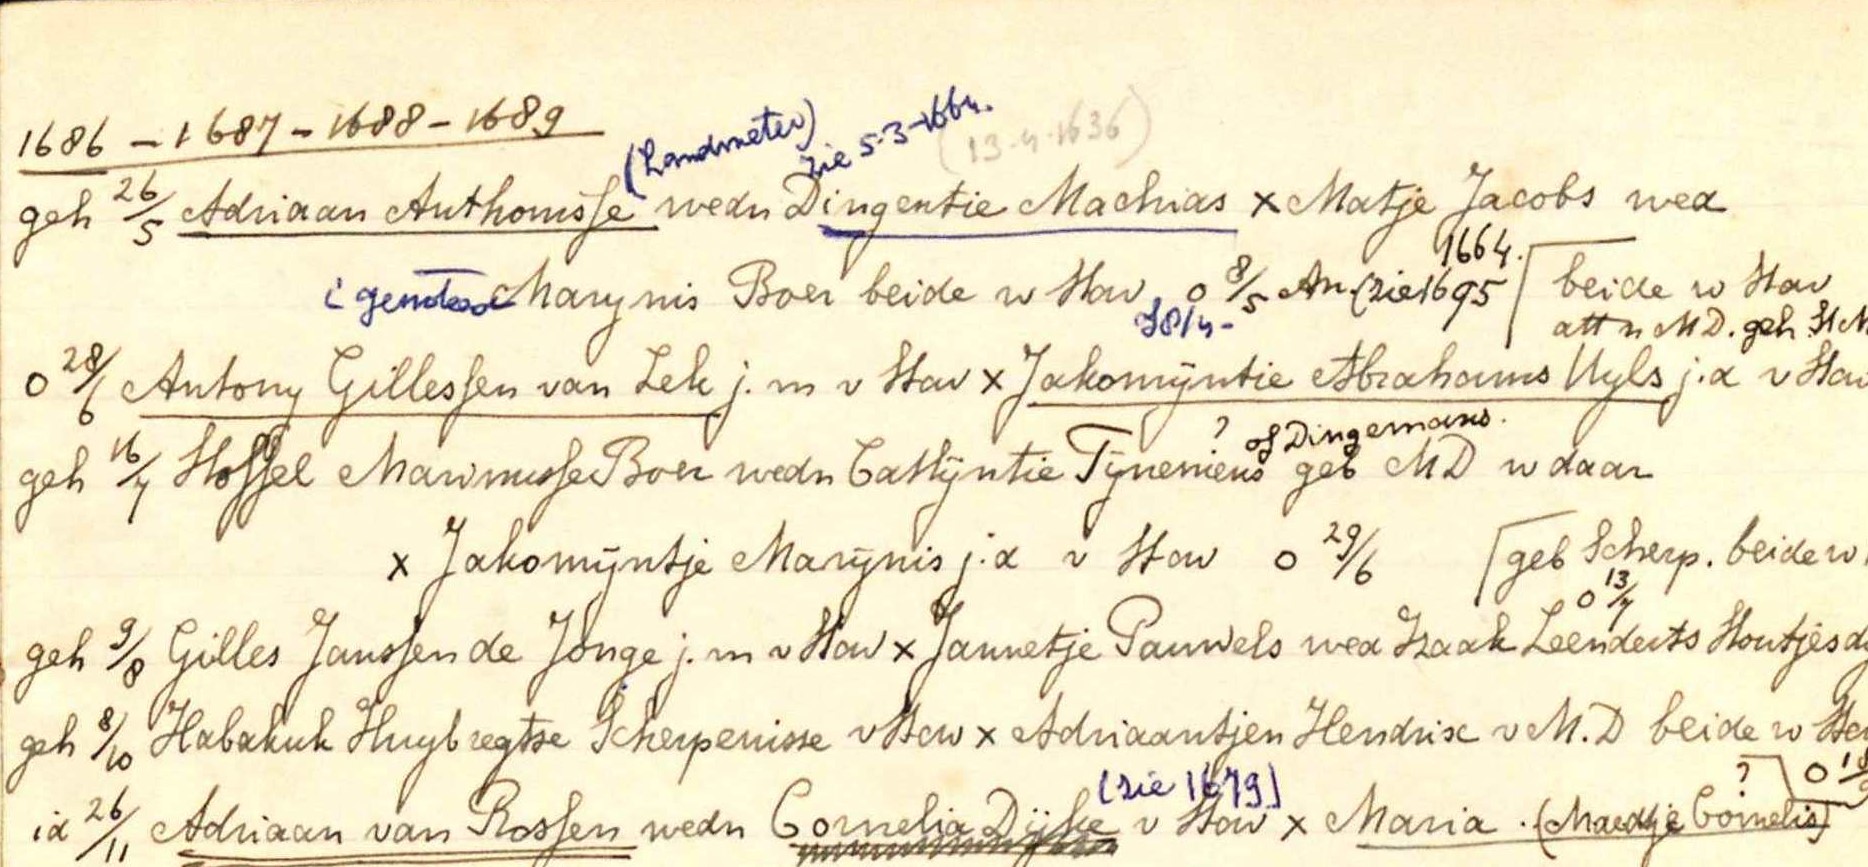 1686 - 1687 - 1688 - 1689
(Landmeter) zie 5-3-1664. (13-4-1636)
geh 26/5 Adriaan Anthonisse wedn Dingentie Machias x Matje Jacobs wed
Marynis Boer beide w Stav o 8/5 An (zie 1695 1664. beide w Stav
att n MD. geh St M
o 28/6 Antony Gillessen van Lek j.m v Stav x Jakomÿntie Abrahams Uyls j.d v Stav
? of Dingemans.
geh 16/7 Stoffel Marinusse Boer wedn Catlÿntie geb MD w daar
x Jakomÿntje Marÿnis j.d v Stav o 29/6 geb Scherp. beide w.
o 13/7
geh 9/8 Gilles Janssen de Jonge j.m v Stav x Jannetje Pauwels wed Izaak Leenderts
geh 8/10 Habakuk Huybregtse Scherpenisse v Stav x Adriaantjen Hendrix v M.D beide w Stav
(zie 1679) ?
id 26/11 Adriaan van Rossen wedn Cornelia Dÿke v Stav x Maria. (Maedje Cornelis)